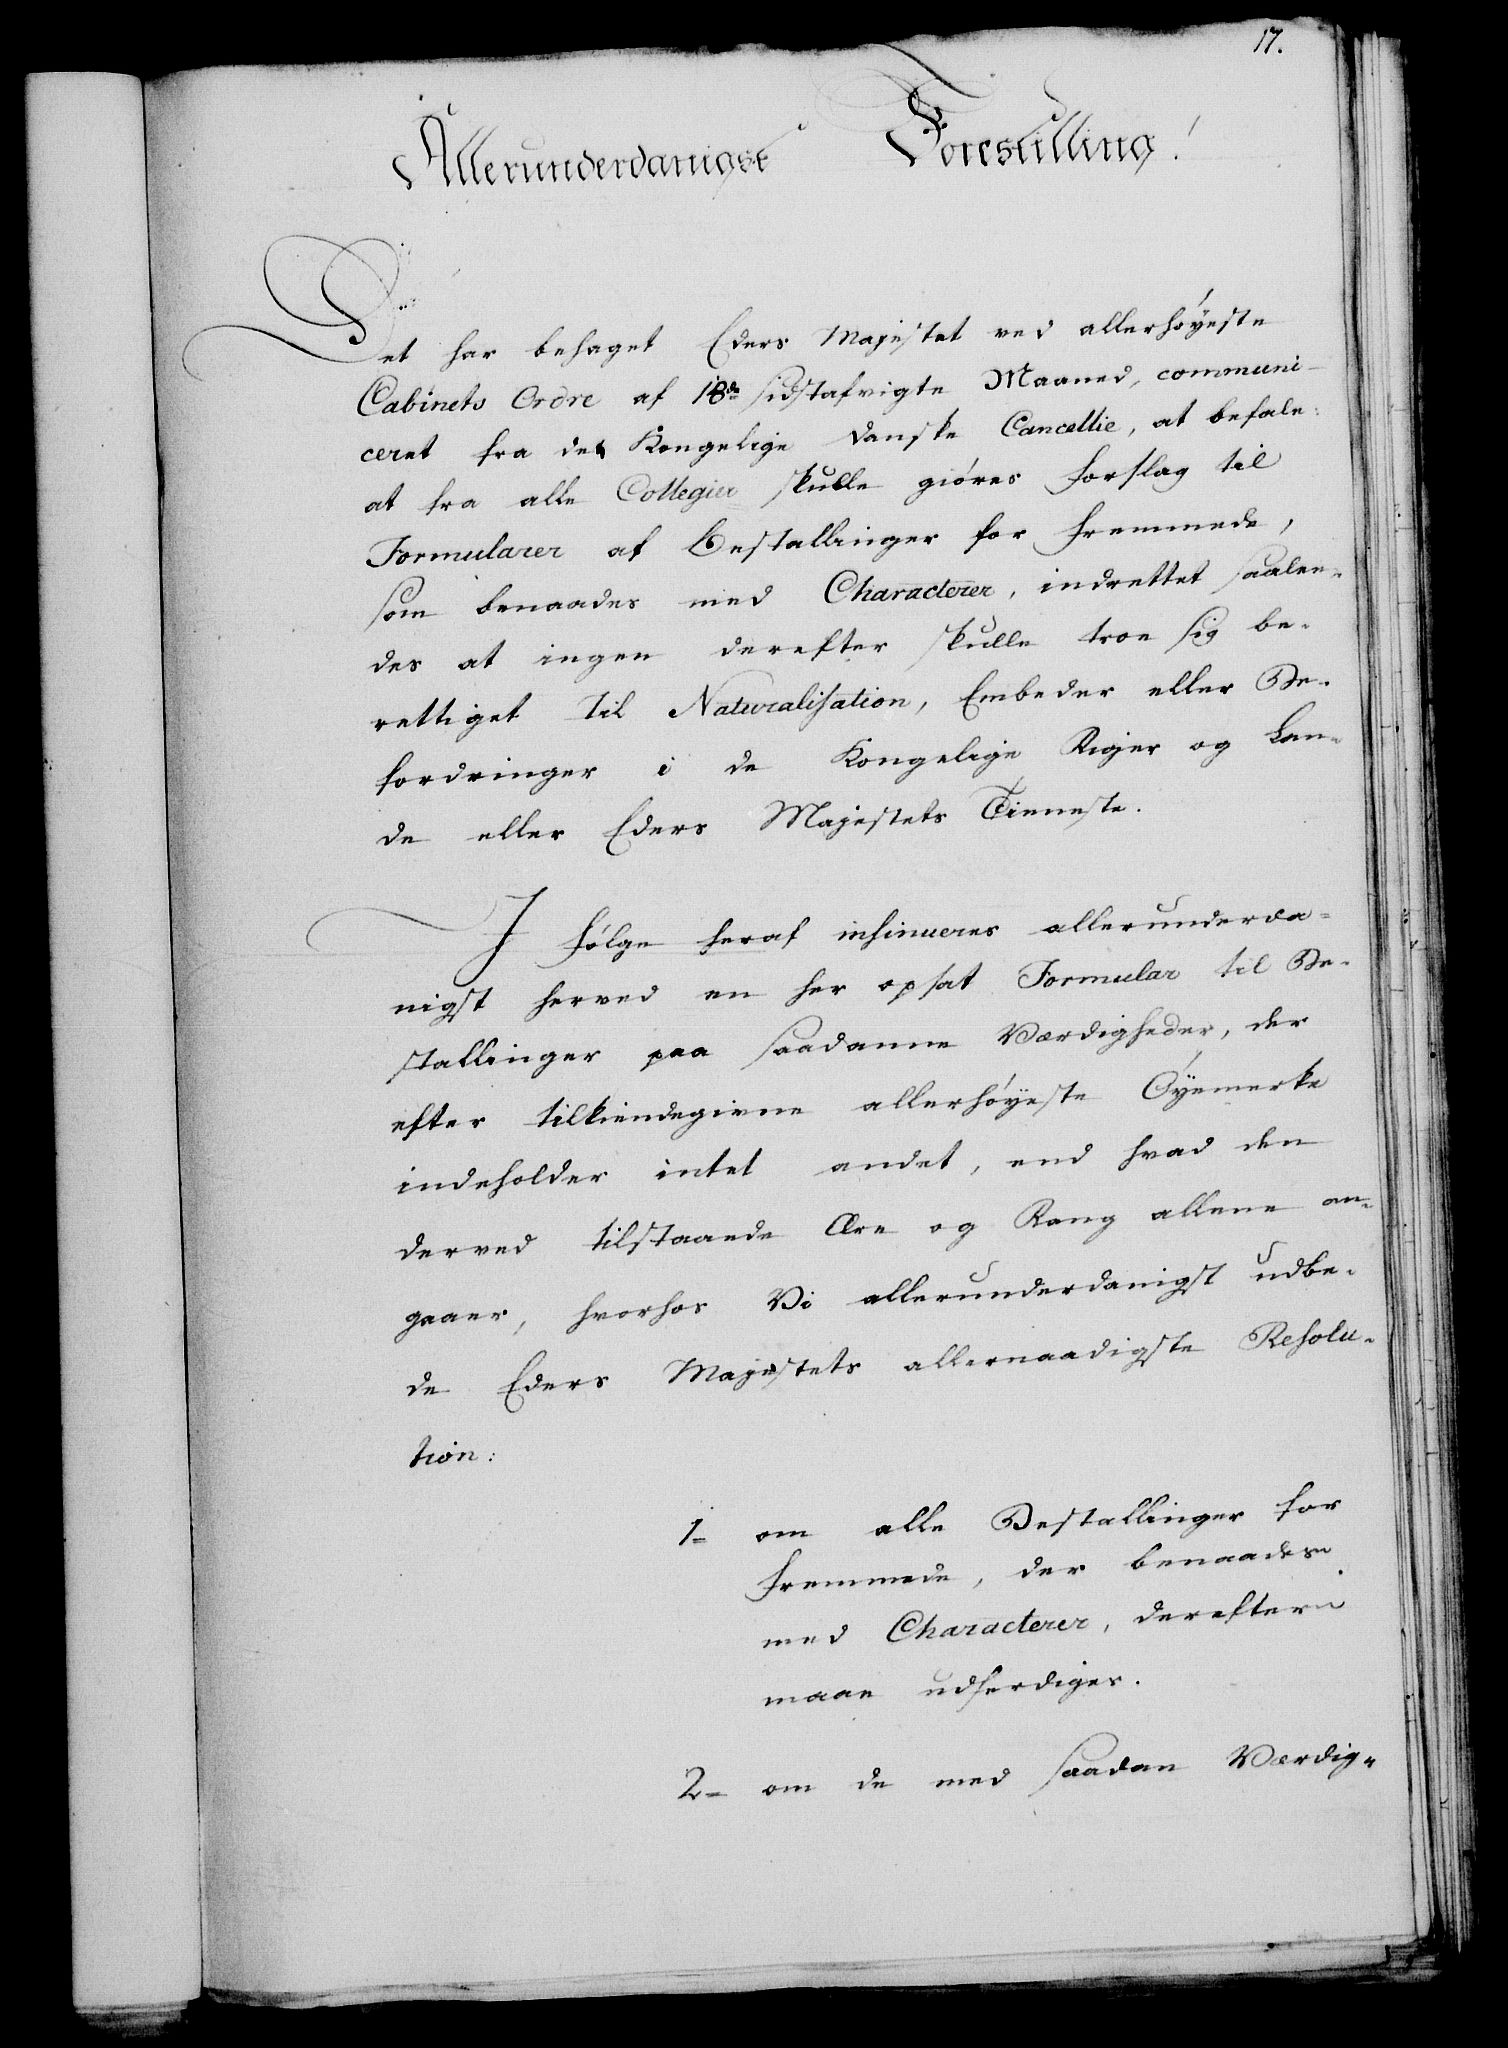 17.
Allerunderdanigst Forestilling!
Det har behaget Eders Majestet ved allerhøyeste
Cabinets Ordre af 18de sidstafvigte Maaned, communi-
ceret fra det Kongelige Danske Cancellie, at befale:
at fra alle Collegier skulle giöres Forslag til
Formularer af Bestallinger for Fremmede,
som benaades med Characterer, indrettet saalee-
des at ingen derefter skulle troe sig be-
rettiget til Naturalisation, Embeder eller Be-
fordringer i de Kongelige Riger og Lan-
de eller Eders Majestets Tieneste.
I Følge heraf insinueres allerunderda-
nigst herved en her opsat Formular til Be-
stallinger paa saadanne Værdigheder, der
efter tilkiendegivne allerhøyeste Øyemerke
indeholder intet andet, end hvad den
derved tilstaaede Ære og Rang allene an-
gaaer, hvorhos Vi allerunderdanigst udbe-
de Eders Majestets allernaadigste Resolu-
tion:
1- om alle Bestallinger for
Fremmede, der benaades
med Characterer, derefter
maae udferdiges.
2- om de med saadan Værdig-